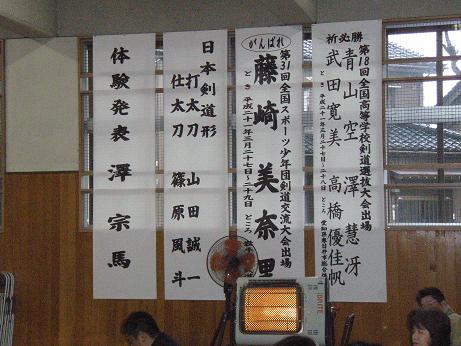 祈必勝
第18回全国高等学校剣道選抜大会出場
青山空 澤慧冴
武田寛美 高橋優佳帆
とき 平成二十一年三月二十七日~二十八日 ところ 愛知県春日井市総合体
がんばれ
第31回全国スポーツ少年団剣道交流大会出場
藤崎美奈
とき 平成二十一年三月二十七日~二十九日 ところ
日本剣道形
打太刀 山田誠一
仕太刀 篠原風斗
体験発表 澤宗馬